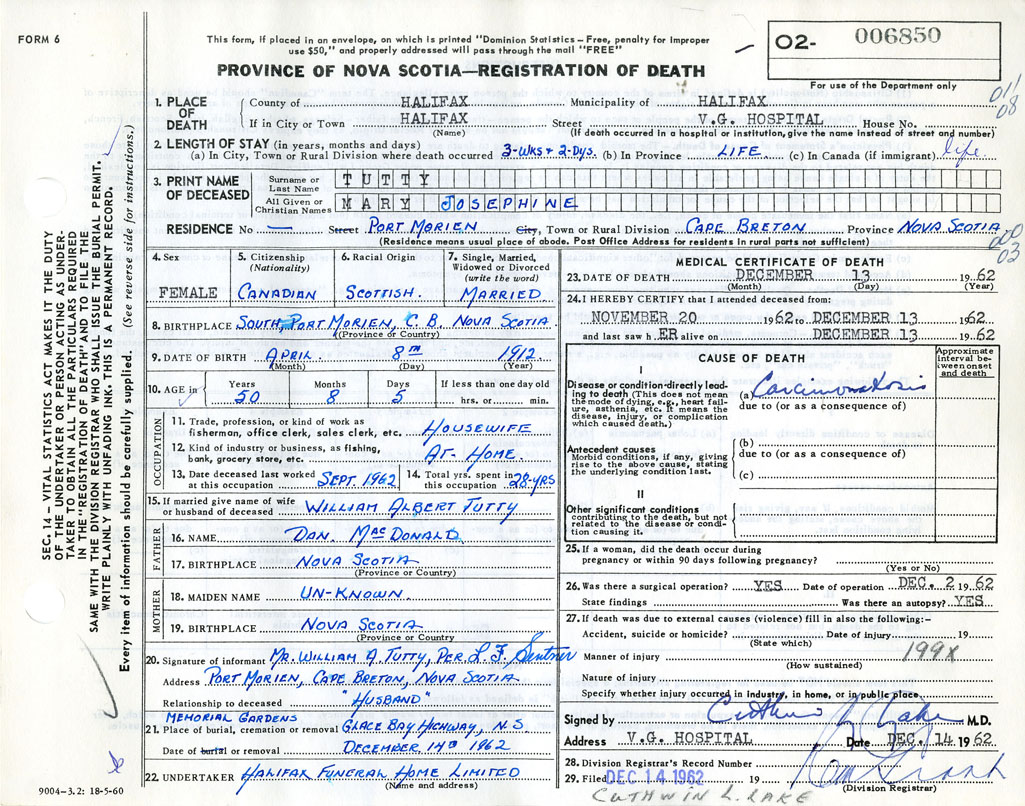 FORM 6
This form, if placed in an envelope, on which is printed "Dominion Statistics – Free, penalty for improper
use $50," and properly addressed will pass through the mail "FREE"
02- 006850
For use of the Department only
PROVINCE OF NOVA SCOTIA—REGISTRATION OF DEATH
011
08
1. PLACE OF DEATH County of HALIFAX Municipality of HALIFAX
If in City or Town HALIFAX Street V.G. HOSPITAL House No.
(Name) (If death occurred in a hospital or institution, give the name instead of street and number)
2. LENGTH OF STAY (in years, months and days)
(a) In City, Town or Rural Division where death occurred 3-WKS + 2-DYS. (b) In Province LIFE. (c) In Canada (if immigrant) life
3. PRINT NAME OF DECEASED Surname or Last Name TUTTY
All Given or Christian Names MARY JOSEPHINE
RESIDENCE No — Street PORT MORIEN City, Town or Rural Division CAPE BRETON Province NOVA SCOTIA
(Residence means usual place of abode. Post Office Address for residents in rural parts not sufficient)
000
03
4. Sex FEMALE
5. Citizenship (Nationality) CANADIAN
6. Racial Origin SCOTTISH.
7. Single, Married, Widowed or Divorced (write the word) MARRIED
8. BIRTHPLACE SOUTH, PORT MORIEN, C. B., NOVA SCOTIA
(Province or Country)
9. DATE OF BIRTH APRIL 8TH 1912
(Month) (Day) (Year)
10. AGE in Years 50 Months 8 Days 5 If less than one day old hrs. or min.
OCCUPATION
11. Trade, profession, or kind of work as
fisherman, office clerk, sales clerk, etc. HOUSEWIFE
12. Kind of industry or business, as fishing,
bank, grocery store, etc. AT- HOME.
13. Date deceased last worked at this occupation SEPT. 1962
14. Total yrs. spent in this occupation 28-YRS
15. If married give name of wife
or husband of deceased WILLIAM ALBERT TUTTY
FATHER
16. NAME DAN. MACDONALD.
17. BIRTHPLACE NOVA SCOTIA
(Province or Country)
MOTHER
18. MAIDEN NAME UN-KNOWN.
19. BIRTHPLACE NOVA SCOTIA
(Province or Country
20. Signature of informant MR. WILLIAM A. TUTTY, PER L. F. Sentner
Address PORT MORIEN, CAPE BRETON, NOVA SCOTIA
Relationship to deceased "HUSBAND"
MEMORIAL GARDENS
21. Place of burial, cremation or removal GLACE BAY HIGHWAY, N.S
Date of burial or removal DECEMBER 14TH 1962
22. UNDERTAKER HALIFAX FUNERAL HOME LIMITED
(Name and address)
9004—3.2: 18-5-60
MEDICAL CERTIFICATE OF DEATH
23. DATE OF DEATH DECEMBER 13 1962
(Month) (Day) (Year)
24. I HEREBY CERTIFY that I attended deceased from:
NOVEMBER 20 1962 to DECEMBER 13 1962
and last saw h ER alive on DECEMBER 13 1962
CAUSE OF DEATH
Approximate interval between onset and death
I
Disease or condition directly leading to death (This does not mean the mode of dying, e.g., heart failure, asthenia, etc. It means the disease, injury, or complication which caused death.)
(a) Carcinomatosis
due to (or as a consequence of)
Antecedent causes
Morbid conditions, if any, giving rise to the above cause, stating the underlying condition last.
(b)
due to (or as a consequence of)
(c)
II
Other significant conditions
contributing to the death, but not related to the disease or condition causing it.
25. If a woman, did the death occur during
pregnancy or within 90 days following pregnancy?
(Yes or No)
26. Was there a surgical operation? YES Date of operation DEC. 2 1962
State findings Was there an autopsy? YES
27. If death was due to external causes (violence) fill in also the following:-
Accident, suicide or homicide? Date of injury 19
(State which)
Manner of injury 199X
(How sustained)
Nature of injury
Specify whether injury occurred in industry, in home, or in public place
Signed by Cuthwin L. Lake M.D.
Address V.G. HOSPITAL Date DEC. 14 1962
28. Division Registrar's Record Number
29. Filed DEC 14 1962 19
(Division Registrar)
CUTHWIN L. LAKE
SEC. 14 – VITAL STATISTICS ACT MAKES IT THE DUTY
OF THE UNDERTAKER OR PERSON ACTING AS UNDER-
TAKER TO OBTAIN ALL THE PARTICULARS REQUIRED
IN THE "REGISTRATION OF DEATH" AND TO FILE THE
SAME WITH THE DIVISION REGISTRAR WHO SHALL ISSUE THE BURIAL PERMIT.
WRITE PLAINLY WITH UNFADING INK. THIS IS A PERMANENT RECORD.
Every item of information should be carefully supplied. (See reverse side for instructions.)